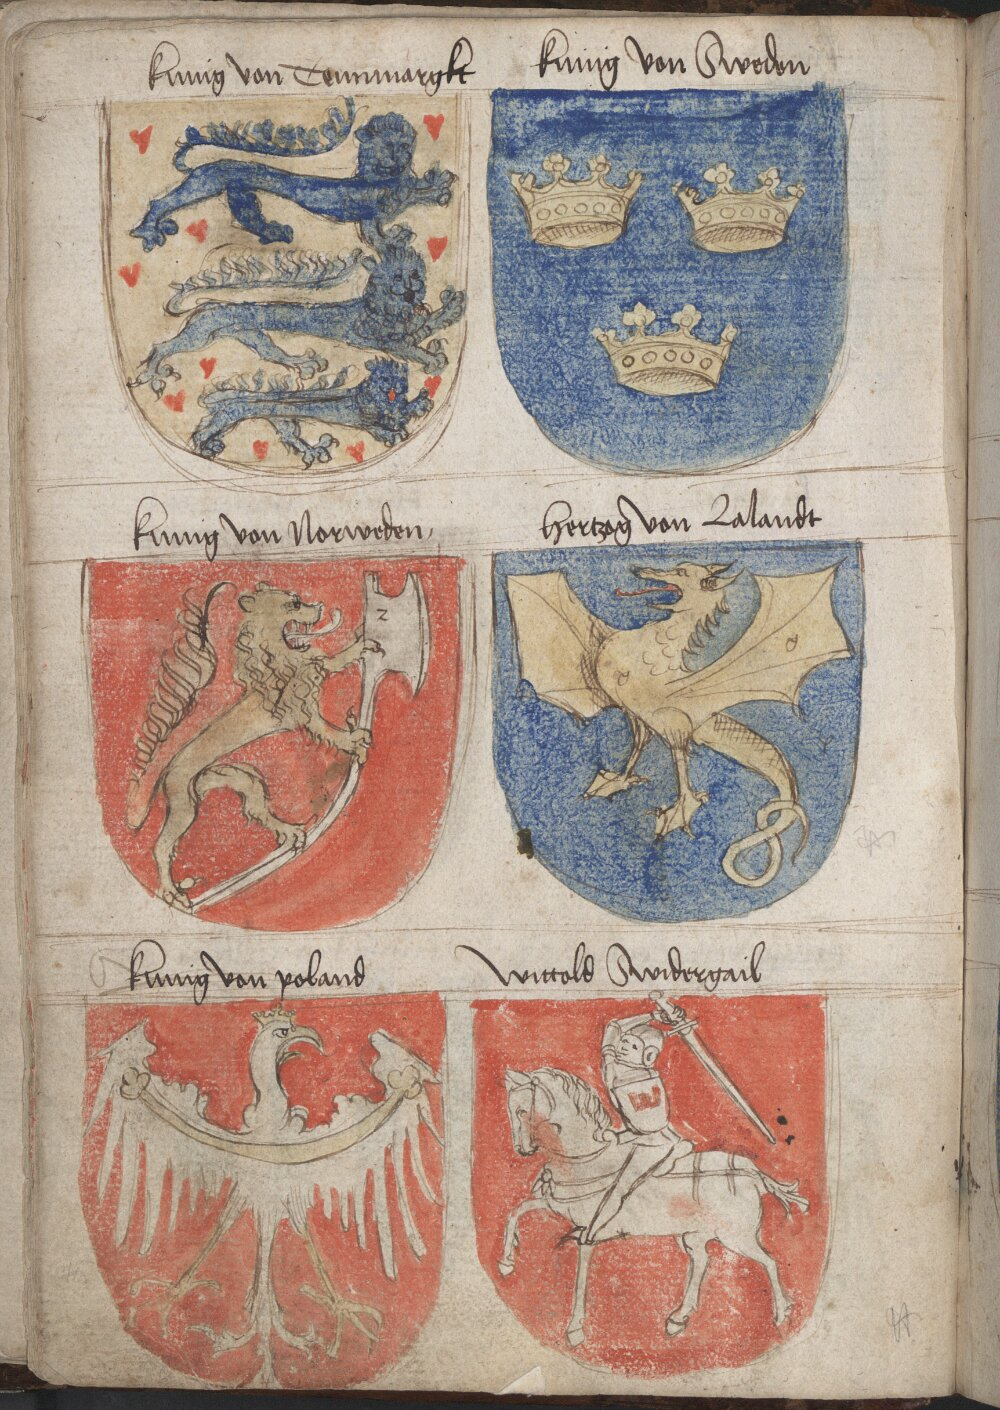 kunig von Tennmargkt
kunig von Sweden
kunig von Norweden
hertzog von Lalandt
kunig von poland
wittold Swidergail